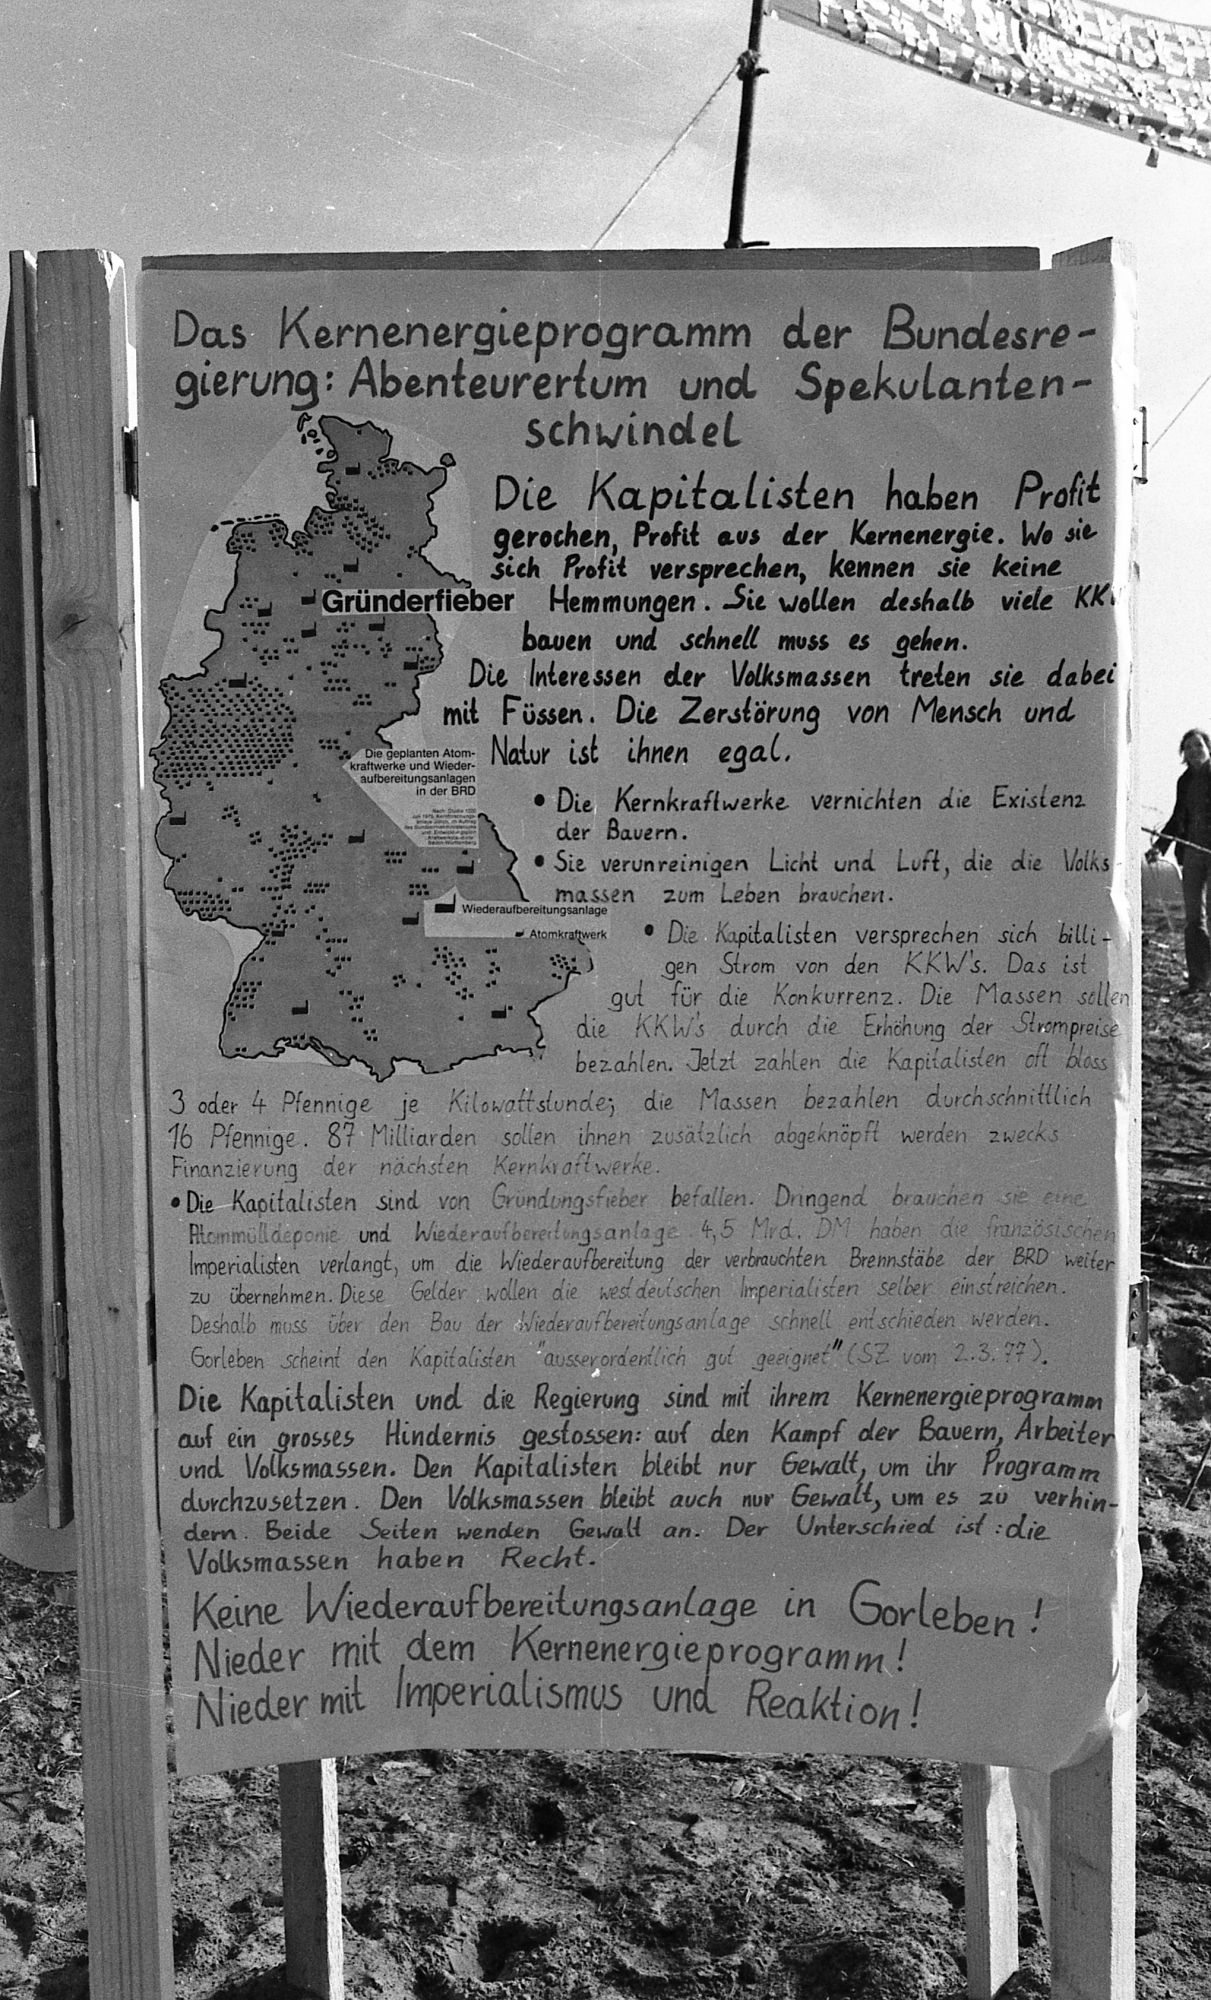 Das Kernenergieprogramm der Bundesre-
gierung: Abenteurertum und Spekulanten-
schwindel
Die Kapitalisten haben Profit
gerochen, Profit aus der Kernenergie. Wo sie
sich Profit versprechen, kennen sie keine
Gründerfieber Hemmungen. Sie wollen deshalb viele
bauen und schnell muss es gehen.
Die Interessen der Volksmassen treten sie dabei
mit Füssen. Die Zerstörung von Mensch und
Natur ist ihnen egal.
Die geplanten Atom-
kraftwerke und Wieder-
aufbereitungsanlagen
in der BRD
• Die Kernkraftwerke vernichten die Existenz
der Bauern.
• Sie verunreinigen Licht und Luft, die die Volks-
massen zum Leben brauchen.
Wiederaufbereitungsanlage
Atomkraftwerk
• Die Kapitalisten versprechen sich billi-
gen Strom von den KKW's. Das ist
gut für die Konkurrenz. Die Massen sollen
die KKW's durch die Erhöhung der Strompreise
bezahlen. Jetzt zahlen die Kapitalisten oft bloss
3 oder 4 Pfennige je Kilowattstunde; die Massen bezahlen durchschnittlich
16 Pfennige. 87 Milliarden sollen ihnen zusätzlich abgeknöpft werden zwecks
Finanzierung der nächsten Kernkraftwerke.
• Die Kapitalisten sind von Gründungsfieber befallen. Dringend brauchen sie eine
Atommülldeponie und Wiederaufbereitungsanlage. 4,5 Mrd. DM haben die französischen
Imperialisten verlangt, um die Wiederaufbereitung der verbrauchten Brennstäbe der BRD weiter
zu übernehmen. Diese Gelder wollen die westdeutschen Imperialisten selber einstreichen.
Deshalb muss über den Bau der Wiederaufbereitungsanlage schnell entschieden werden.
Gorleben scheint den Kapitalisten "ausserordentlich gut geeignet" (SZ vom 2.3.77).
Die Kapitalisten und die Regierung sind mit ihrem Kernenergieprogramm
auf ein grosses Hindernis gestossen: auf den Kampf der Bauern, Arbeiter
und Volksmassen. Den Kapitalisten bleibt nur Gewalt, um ihr Programm
durchzusetzen. Den Volksmassen bleibt auch nur Gewalt, um es zu verhin-
dern. Beide Seiten wenden Gewalt an. Der Unterschied ist: die
Volksmassen haben Recht.
Keine Wiederaufbereitungsanlage in Gorleben!
Nieder mit dem Kernenergieprogramm!
Nieder mit Imperialismus und Reaktion!